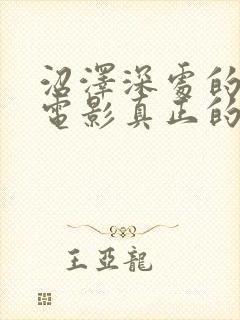 沼澤深處的
電影真正的
王亞龍